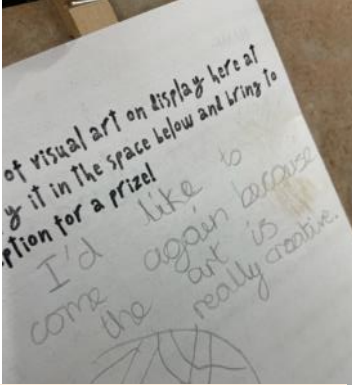 of visual art on display here at
y it in the space below and bring to
ption for a prize!
I'd like to
come again because
the art is
really creative.